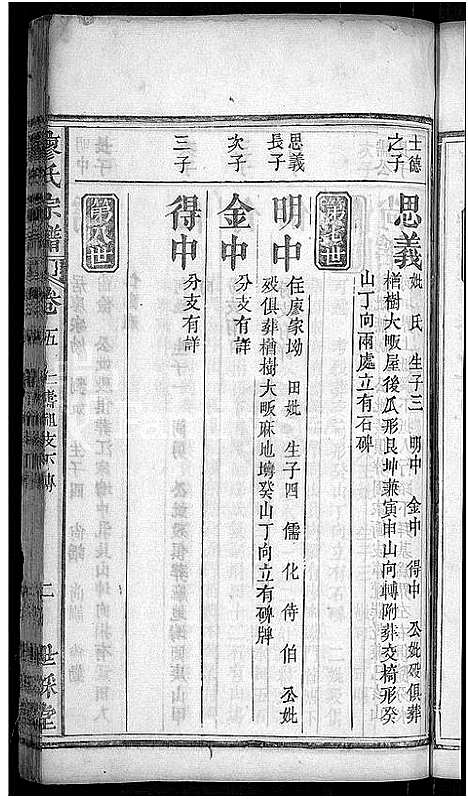 士德之子
思義
妣 氏 生子三 明中 金中 得中 公妣歿俱葬
樹大畈屋後瓜形艮坤兼寅申山向轉附葬交椅形癸
山丁向兩處立有石碑
第七世
思義長子
明中
住廖家坳 田妣 生子四 儒 化 侍 伯 公妣
歿俱葬樹大畈麻地塆癸山丁向立有碑牌
次子
金中
分支有詳
三子
得中
分支有詳
第八世
廖氏宗譜 卷五
二 世綵堂